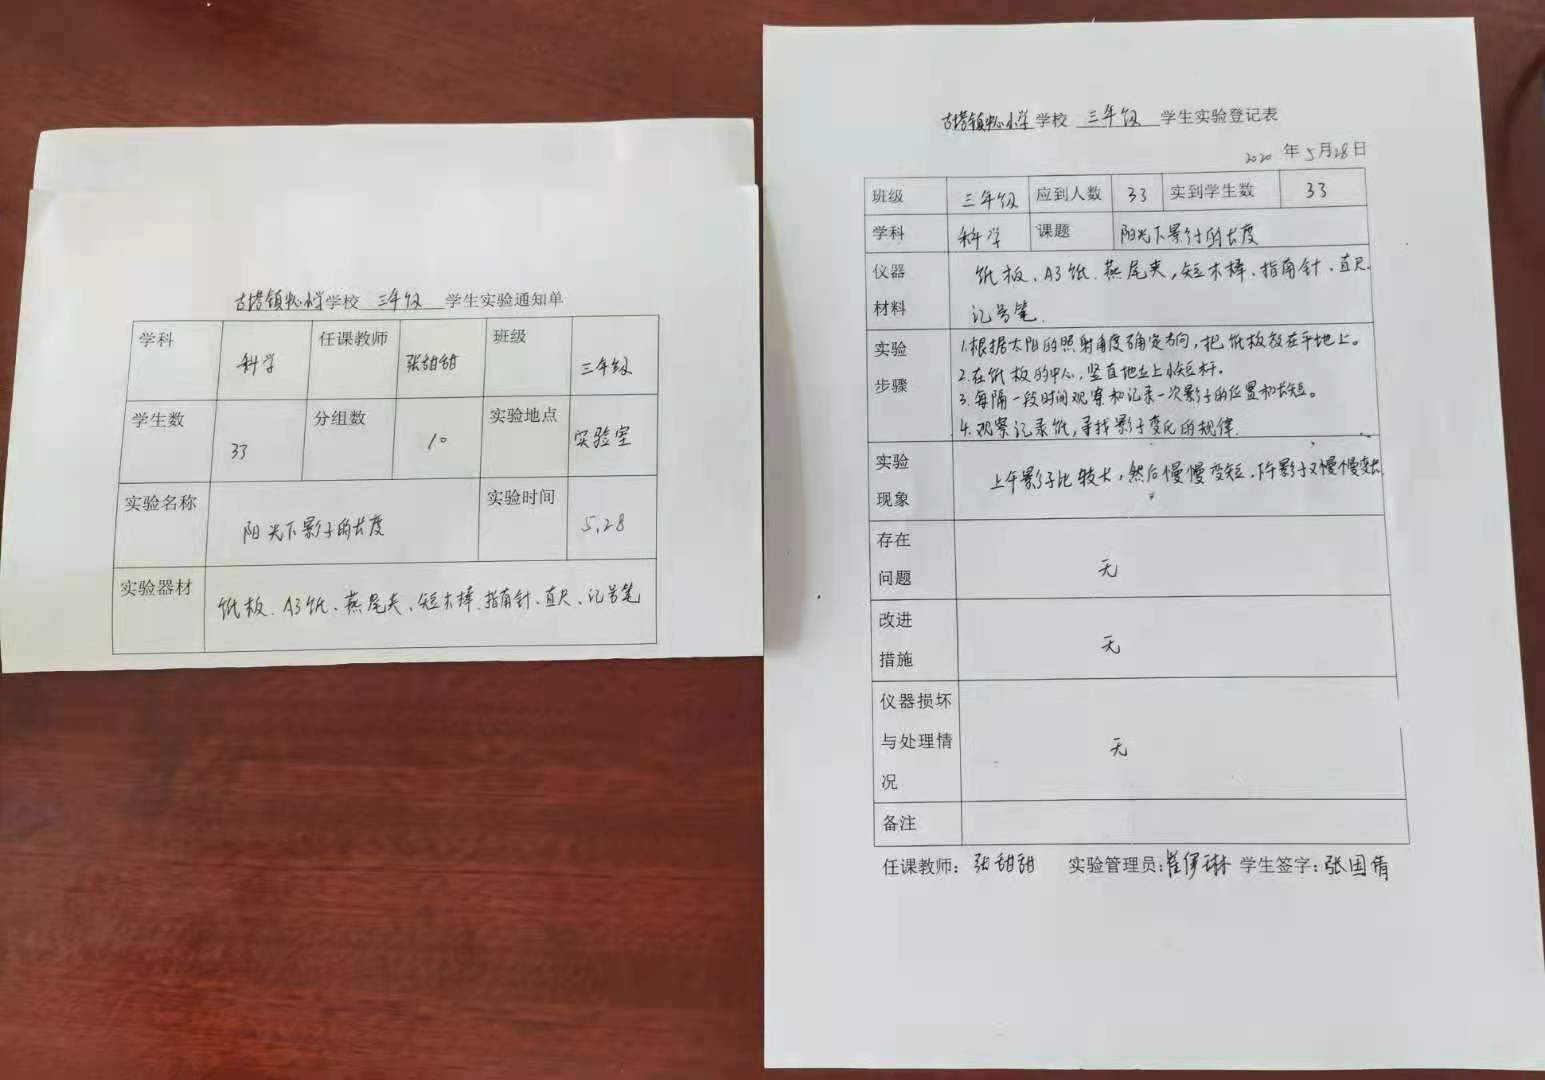 古塔镇中心小学学校 三年级 学生实验通知单
学科 科学 任课教师 张甜甜 班级 三年级
学生数 33 分组数 10 实验地点 实验室
实验名称 阳光下影子的长度 实验时间 5.28
实验器材 纸板、A3纸、燕尾夹、短木棒、指南针、直尺、记号笔
古塔镇中心小学学校 三年级 学生实验登记表
2020 年 5月28日
班级 三年级 应到人数 33 实到学生数 33
学科 科学 课题 阳光下影子的长度
仪器 纸板、A3纸、燕尾夹,短木棒、指南针、直尺、
材料 记号笔.
实验 1.根据太阳的照射角度确定方向,把纸板放在平地上。
步骤 2.在纸板的中心,竖直地立上小短杆。
3.每隔一段时间观察和记录一次影子的位置和长短。
4.观察记录纸,寻找影子变化的规律.
实验 上午影子比较长,然后慢慢变短,下午影子又慢慢变长.
现象
存在
问题 无
改进
措施 无
仪器损坏
与处理情 无
况
备注
任课教师:张甜甜 实验管理员:崔伊琳 学生签字:张国倩